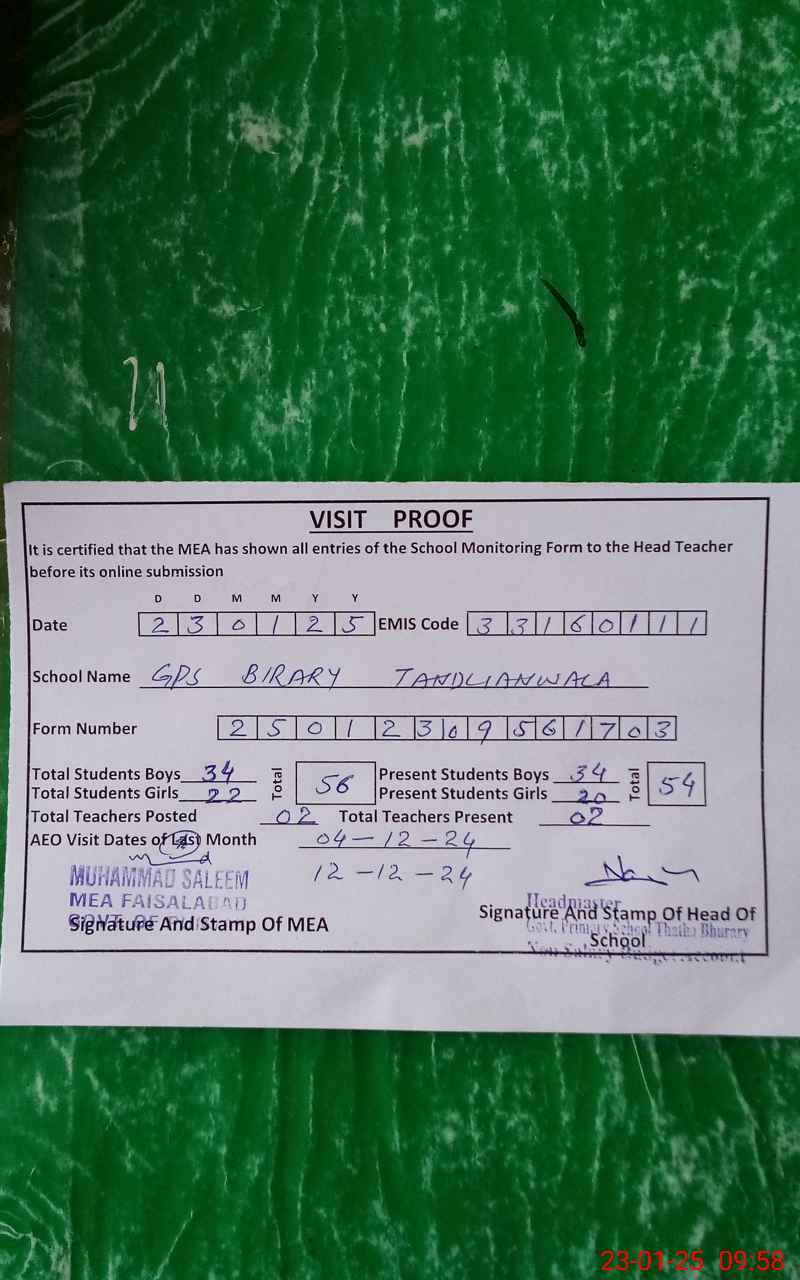 VISIT PROOF
It is certified that the MEA has shown all entries of the School Monitoring Form to the Head Teacher
before its online submission
D D M M Y Y
Date 2 3 0 1 2 5 EMIS Code 3 3 1 6 0 1 1 1
School Name GPS BIRARY TANDLIANWALA
Form Number 2 5 0 1 2 3 0 9 5 6 1 7 0 3
Total Students Boys 34 Total 56 Present Students Boys 34 Total 54
Total Students Girls 22 Present Students Girls 20
Total Teachers Posted 02 Total Teachers Present 02
AEO Visit Dates of Last Month 04-12-24
12-12-24
MUHAMMAD SALEEM
MEA FAISALABAD
GOVT. OF
Signature And Stamp Of MEA
Headmaster
Signature And Stamp Of Head Of
Govt. Primary School Thatha Bhurary
School
Non Salary Budget Account
23-01-25 09:58